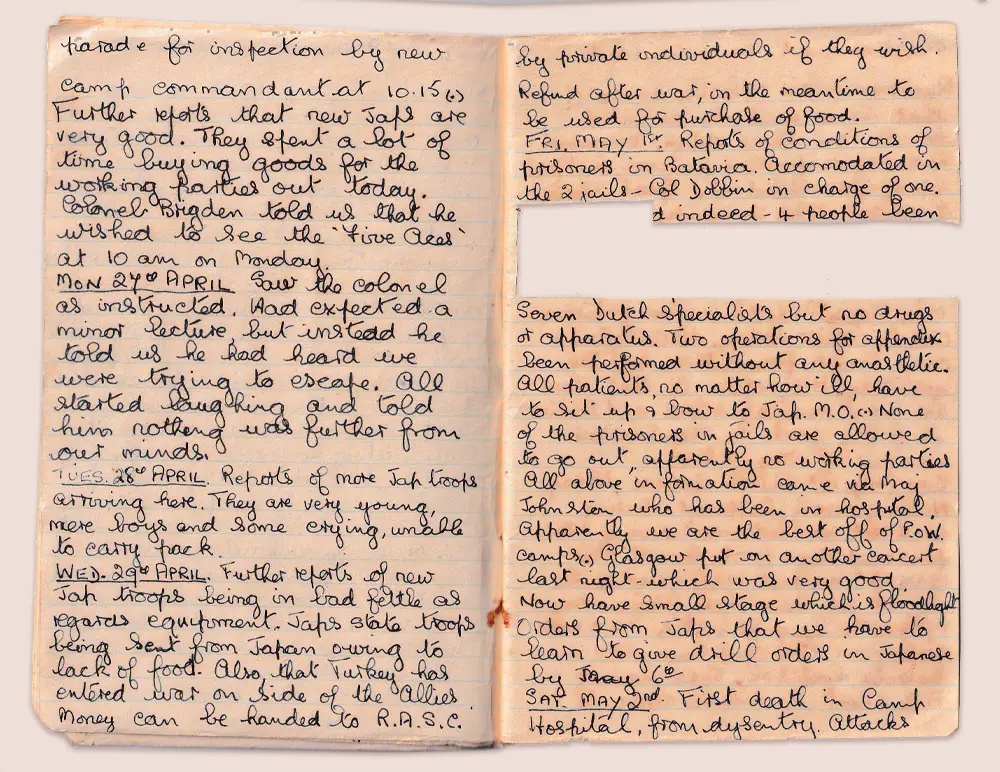 parade for inspection by new
camp commandant at 10.15(.)
Further reports that new Japs are
very good. They spent a lot of
time buying goods for the
working parties out today.
Colonel Brigden told us that he
wished to see the 'Five Aces'
at 10 am on Monday.
MON 27th APRIL Saw the colonel
as instructed. Had expected a
minor lecture, but instead he
told us he had heard we
were trying to escape. All
started laughing and told
him nothing was further from
our minds.
TUES. 28th APRIL. Reports of more Jap troops
arriving here. They are very young,
mere boys and some crying, unable
to carry pack.
WED. 29th APRIL. Further reports of new
Jap troops being in bad fettle as
regards equipment. Japs state troops
being sent from Japan owing to
lack of food. Also, that Turkey has
entered war on side of the Allies.
Money can be handed to R.A.S.C.
by private individuals if they wish.
Refund after war, in the meantime to
be used for purchase of food.
FRI. MAY 1st. Reports of conditions of
prisoners in Batavia. Accomodated in
the 2 jails - Col Dobbin in charge of one.
d indeed - 4 people been
Seven Dutch specialists but no drugs
or apparatus. Two operations for appendix
been performed without any anasthetic.
All patients, no matter how ill, have
to sit up & bow to Jap. M.O.(.) None
of the prisoners in jails are allowed
to go out, apparently no working parties
All above information came via Maj
Johnsten who has been in hospital.
Apparently we are the best off of P.O.W.
camps(.) Glasgow put on another concert
last night - which was very good
Now have small stage which is floodlight
Orders from Japs that we have to
learn to give drill orders in Japanese
by 6th
SAT. MAY 2nd. First death in Camp
Hospital, from dysentry. Attacks